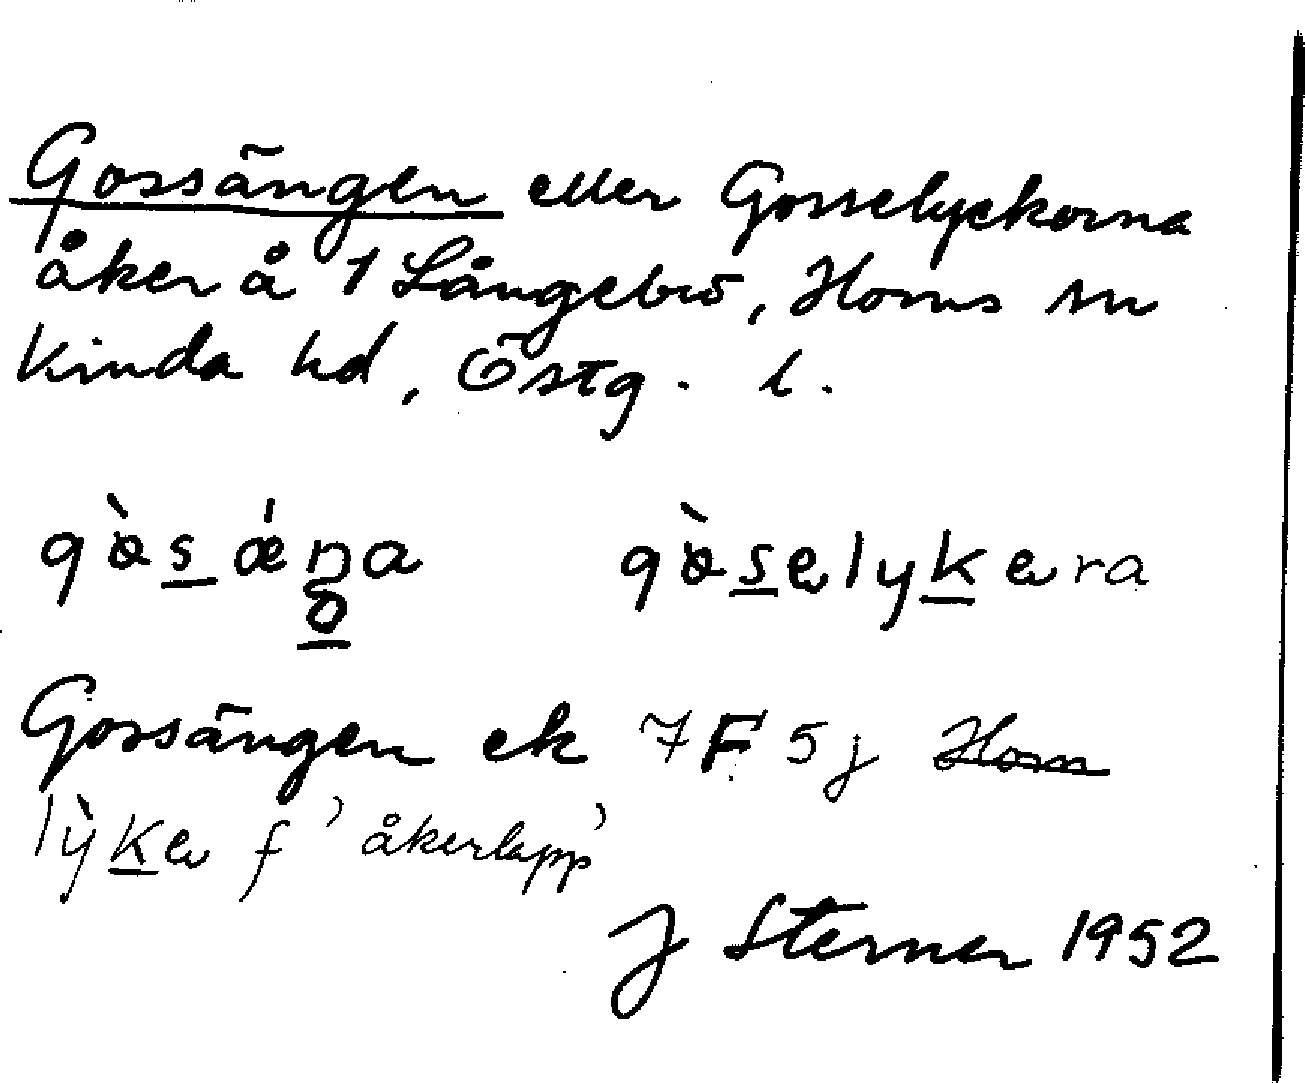 Gossängen eller Gosselyckorna
åker å 1 Långebro, Horns sn
Kinda hd, Östg. l.
Gossängen ek 7F5j Horn
f 'åkerlapp'
J Sterner 1952